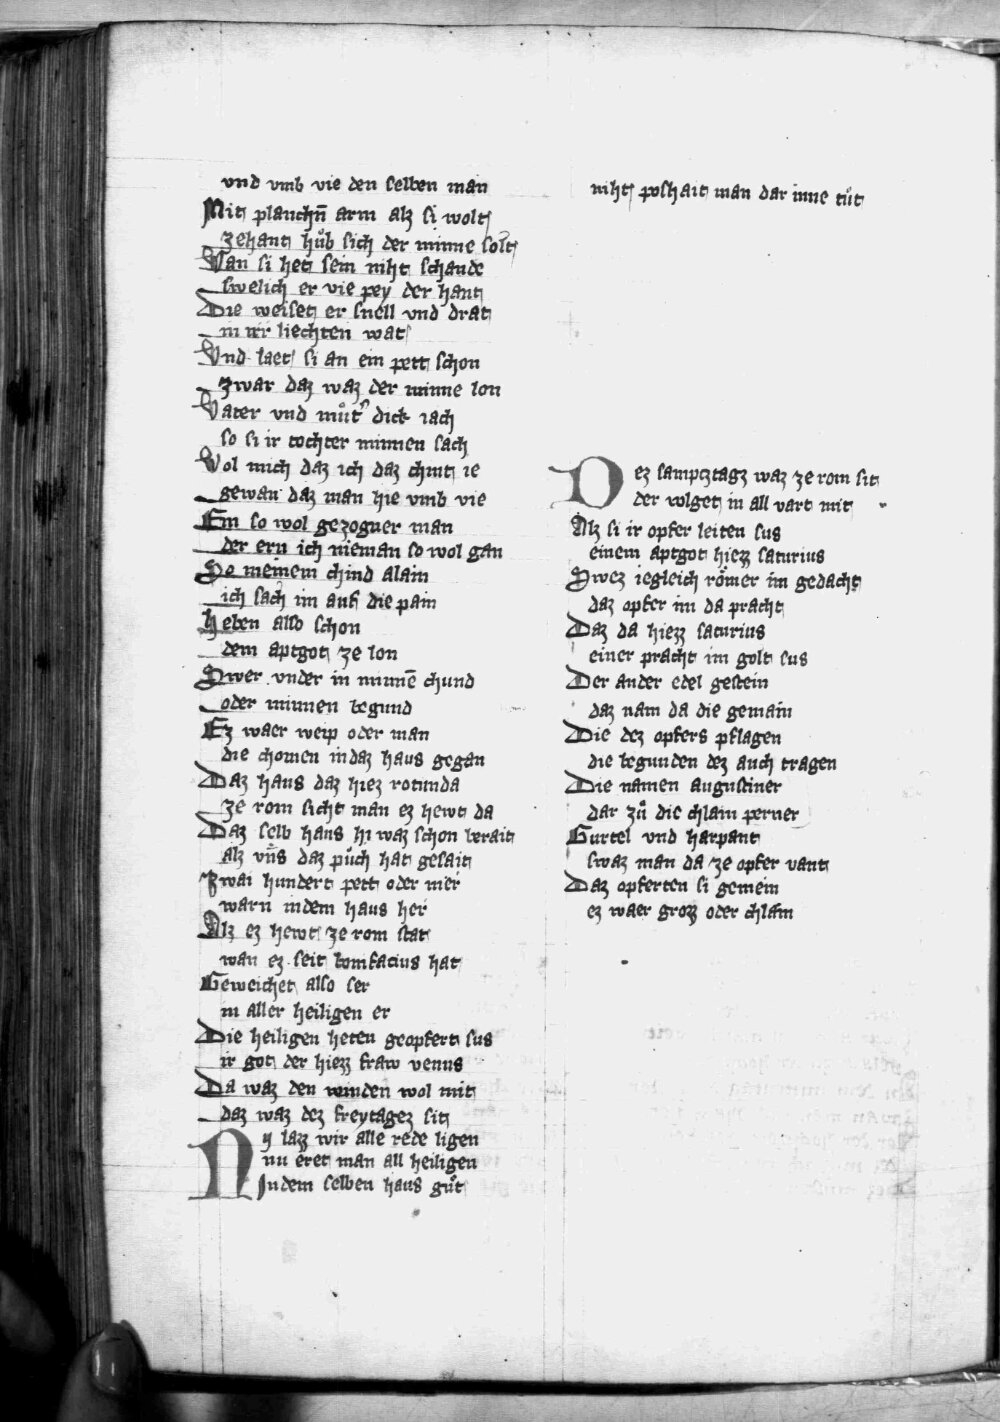 vnd vmb vie den selben man
Mit planchn̄ arm alz si wolt
zehant hůb sich der minne solt
Wan si het sein niht schande
swelich er vie pey der hant
Die weiset er snell vnd drat
in irr liechten wat
Vnd laet si an ein pett schon
zwar daz waz der minne lon
Vater vnd můt' dick iach
so si ir tochter minnen sach
Wol mich daz ich daz chint ie
gewan daz man hie vmb vie
Ein so wol gezogner man
der ern ich nieman so wol gan
So meinem chind alain
ich sach im auf die pain
Heben also schon
dem aptgot ze lon
Swer vnder in minnē chund
oder minnen begund
Ez waer weip oder man
die chomen in daz haus gegan
Daz haus daz hiez rotunda
ze rom sicht man ez hewt da
Daz selb haus hi waz schon berait
alz vn̄s daz půch hat gesait
Zwai hundert pett oder mer
warn in dem haus her
Alz ez hewt ze rom stat
wan ez seit bonifacius hat
Geweichet also ser
in aller heiligen er
Die heiligen heten geopfert sus
ir got der hiezz fraw venus
Da waz den winden wol mit
daz waz dez freytagez sit
Ny lazz wir alle rede ligen
nu eret man all heiligen
In dem selben haus gůt
niht poshait man dar inne tůt
Dez sampcztagz waz ze rom sit
der volget in all vart mit
Alz si ir opfer leiten sus
einem aptgot hiezz saturius
Swez iegleich römer im gedacht
daz opfer im da pracht
Daz da hiezz saturius
einer pracht im golt sus
Der ander edel gestein
daz nam da die gemain
Die dez opfers pflagen
die begunden dez auch tragen
Die namen augustiner
dar zů die chlain perner
Gurtel vnd harpant
swaz man da ze opfer vant
Daz opferten si gemein
ez waer grozz oder chlain